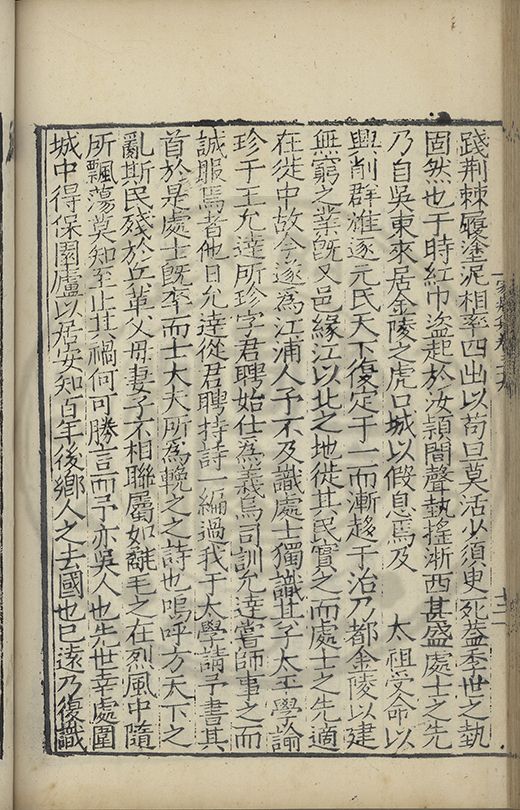 踐荆棘履塗泥相率四出以苟旦莫活必須臾死葢季世之埶
固然也于時紅巾盜起於汝潁間聲埶搖淅西甚盛處士之先
乃自吳東來居金陵之虎口城以假息焉及 太祖受命以
興削群雄逐元氏天下復定于一而漸趍于治乃都金陵以建
無窮之業旣又邑緣江以北之地徙其民實之而處士之先適
在徙中故今遂為江浦人予不及識處士獨識其子太平學諭
珍于王允逹所珍字君聘始仕為義烏司訓允逹嘗師事之而
誠服焉者他日允逹從君聘持詩一編過我于太學請予書其
首於是處士旣卒而士大夫所為輓之之詩也嗚呼方天下之
亂斯民殘於兵革父母妻子不相聯屬如毳毛之在烈風中隨
所飄蕩莫知至止其禍何可勝言而予亦吳人也先世幸處圍
城中得保園廬以居安知百年後鄉人之去國也已遠乃復識